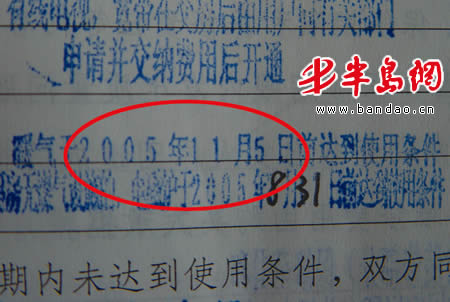 申请并交纳费用后开通
半半岛网
www.bandao.cn
暖气于2005年11月5日前达到使用条件
于2005年8月31日前达到使用条件
期内未达到使用条件，双方同